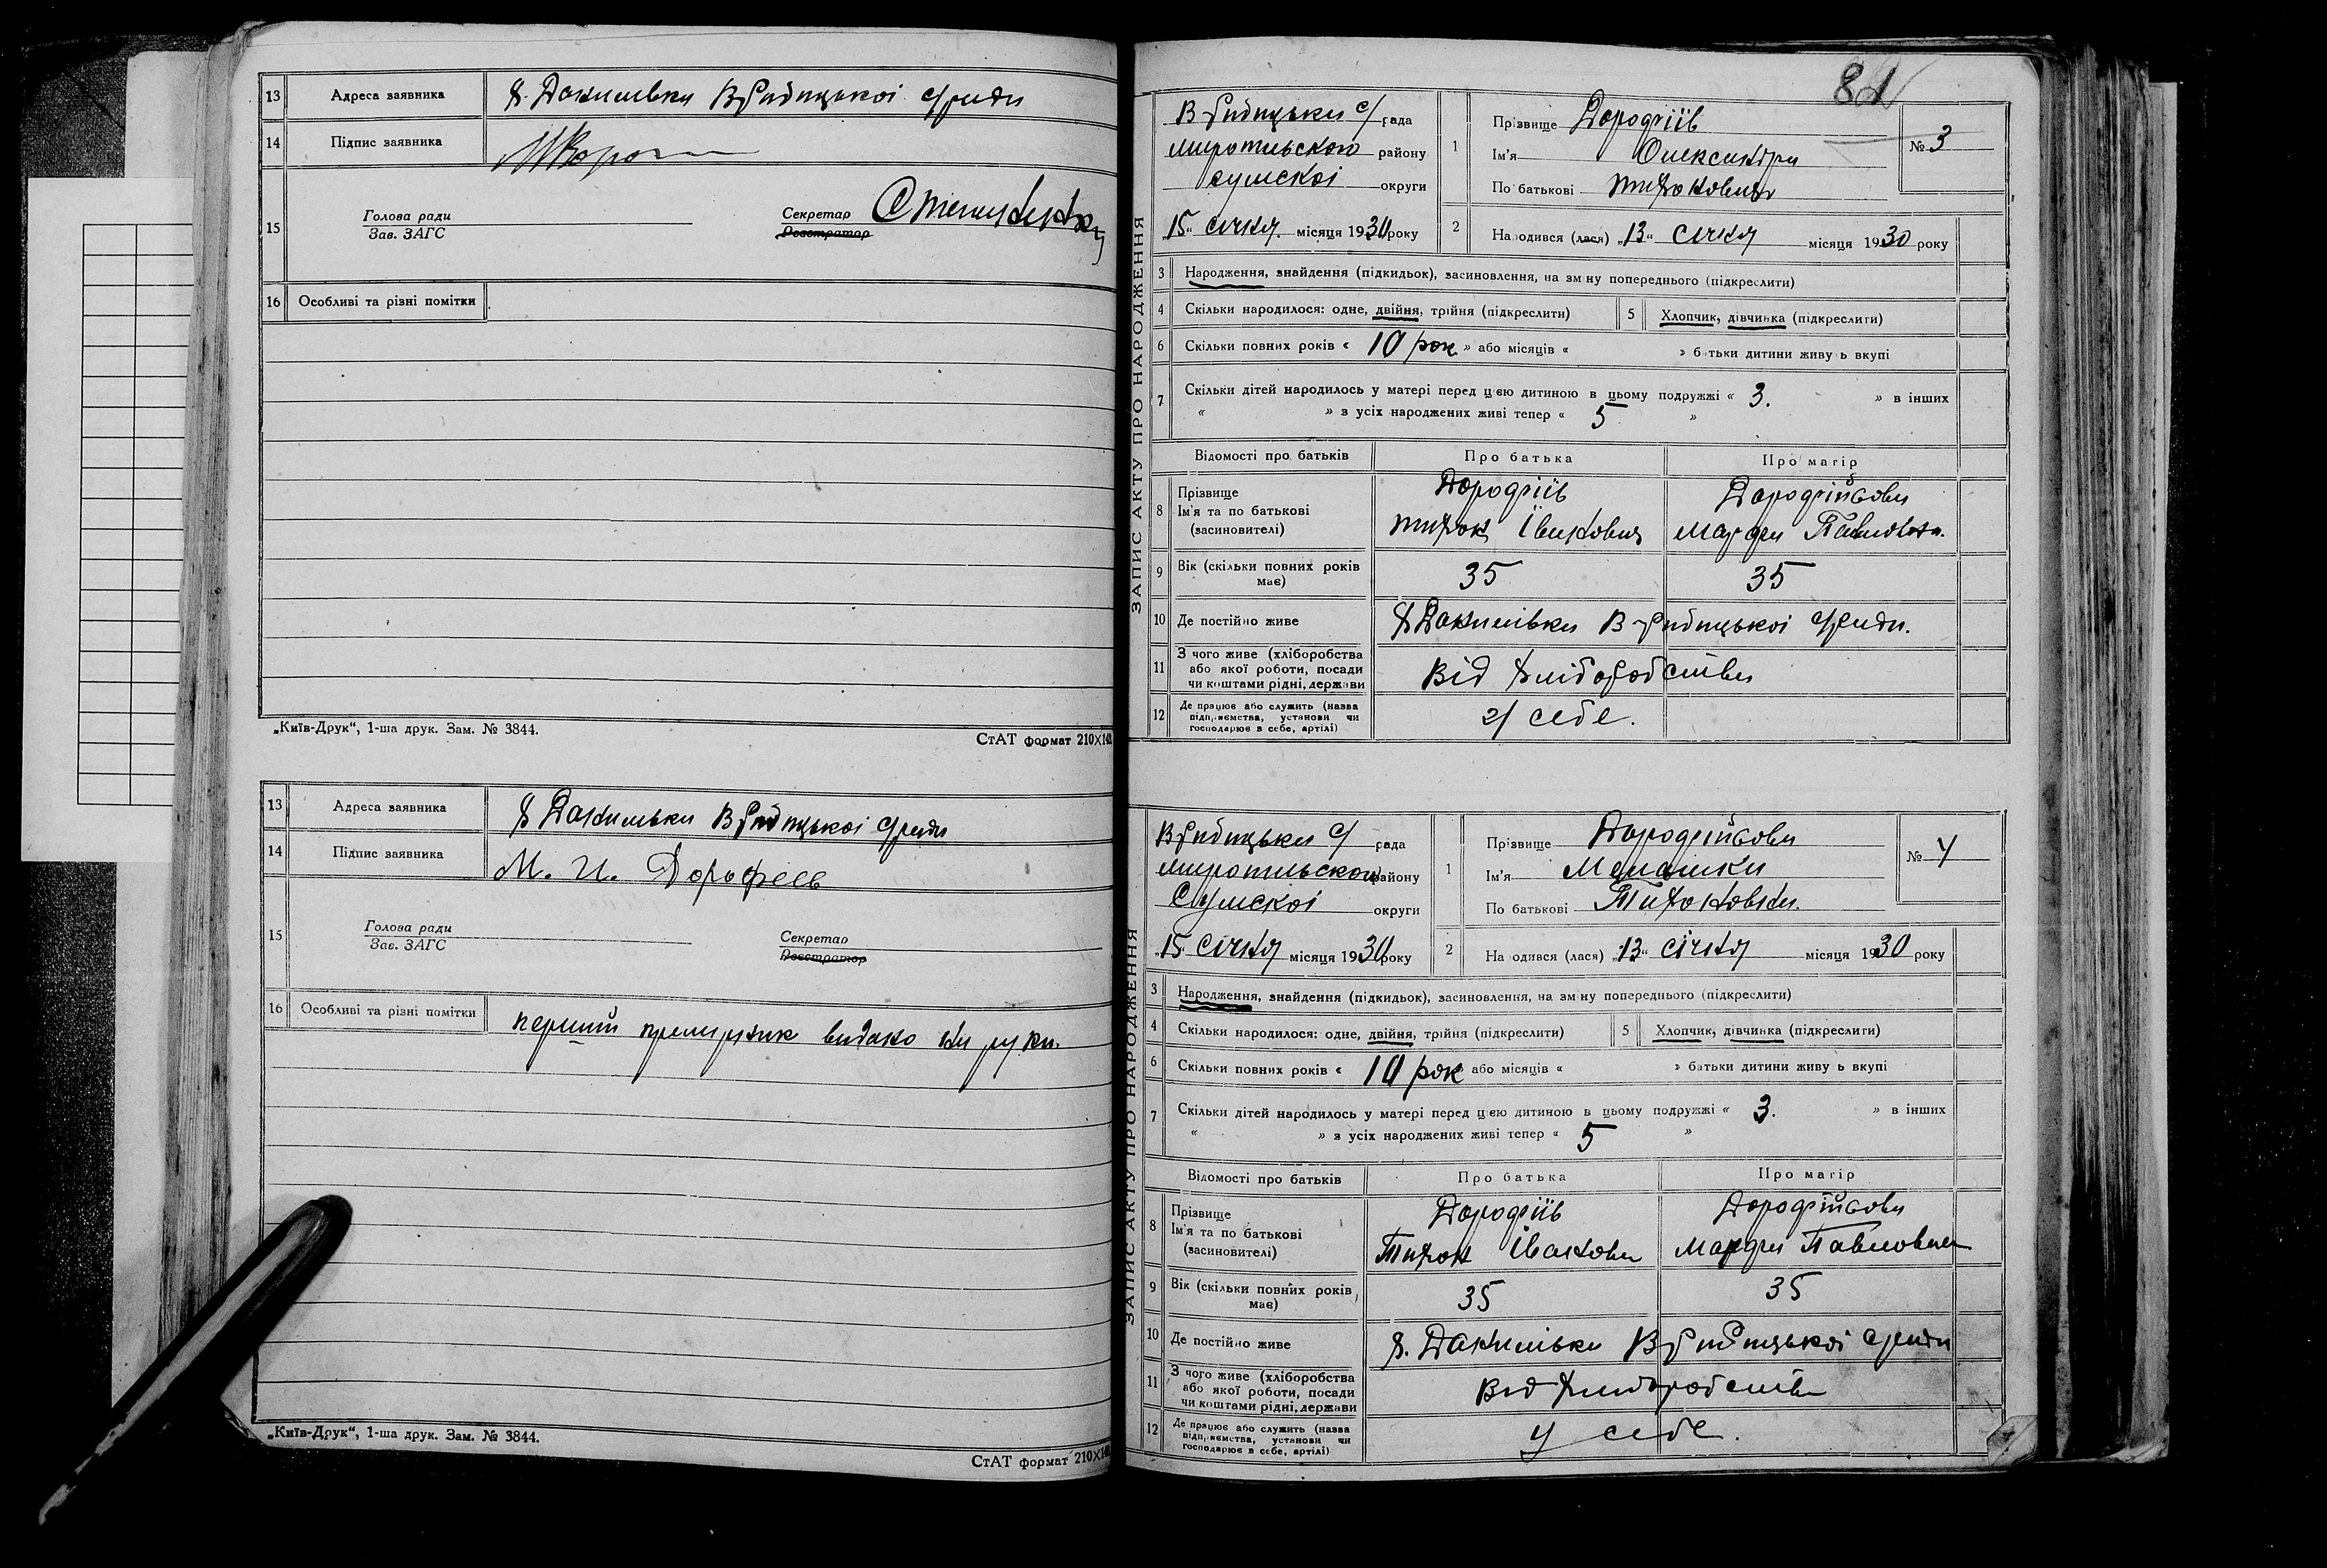 13 Адреса заявника х. Данилівка В-Рибицької с/ради
14 Підпис заявника
15 Голова ради
Зав. ЗАГС
Секретар
Реєстратор
16 Особливі та різні помітки
„Київ-Друк“, 1-ша друк. Зам. № 3844.
СтАТ формат 210×14
13 Адреса заявника х. Данилівка В-Рибицької с/ради
14 Підпис заявника М. И. Дорофеев
15 Голова ради
Зав. ЗАГС
Секретар
Реєстратор
16 Особливі та різні помітки перший примірник видано на руки.
„Київ-Друк“, 1-ша друк. Зам. № 3844.
СтАТ формат 210×14
81
ЗАПИС АКТУ ПРО НАРОДЖЕННЯ
В-Рибицька с/рада
Миропільского району
Сумскої округи
15 січня місяця 1930 року
1 Прізвище Дорофіїв
Ім'я Олександра
По батькові Тихонович
№ 3
2 Народився (лася) „13“ січня місяця 1930 року
3 Народження, знайдення (підкидьок), засиновлення, на зміну попереднього (підкреслити)
4 Скільки народилося: одне, двійня, трійня (підкреслити)
5 Хлопчик, дівчинка (підкреслити)
6 Скільки повних років « 10 рок » або місяців « » батьки дитини живуть вкупі
7 Скільки дітей народилось у матері перед цією дитиною в цьому подружжі « 3. » в інших
« » з усіх народжених живі тепер « 5 »
Відомості про батьків Про батька Про матір
8 Прізвище Дорофіїв Дорофійова
Ім'я та по батькові Тихон Іванович Марфа Павловна.
(засновителі)
9 Вік (скільки повних років має) 35 35
10 Де постійно живе х Данилівка В-Рибицької с/ради.
11 З чого живе (хліборобства або якої роботи, посади чи коштами рідні, держави Від хліборобства
12 Де працює або служить (назва підприємства, установи чи господарює в себе, артілі) у себе.
ЗАПИС АКТУ ПРО НАРОДЖЕННЯ
В-Рибицька с/рада
Миропільского району
Сумскої округи
„15“ січня місяця 1930 року
1 Прізвище Дорофійова
Ім'я Меланика
По батькові Тихоновна.
№ 4
2 Народився (лася) „13“ січня місяця 1930 року
3 Народження, знайдення (підкидьок), засиновлення, на зміну попереднього (підкреслити)
4 Скільки народилося: одне, двійня, трійня (підкреслити)
5 Хлопчик, дівчинка (підкреслити)
6 Скільки повних років « 10 рок » або місяців « » батьки дитини живуть вкупі
7 Скільки дітей народилось у матері перед цією дитиною в цьому подружжі « 3. » в інших
« » з усіх народжених живі тепер « 5 »
Відомості про батьків Про батька Про матір
8 Прізвище Дорофіїв Дорофійова
Ім'я та по батькові Тихон Іванови Марфа Павловна
(засновителі)
9 Вік (скільки повних років має) 35 35
10 Де постійно живе х. Данилівка В-Рибицької с/ради
11 З чого живе (хліборобства або якої роботи, посади чи коштами рідні, держави Від хліборобства
12 Де працює або служить (назва підприємства, установи чи господарює в себе, артілі) у себе.